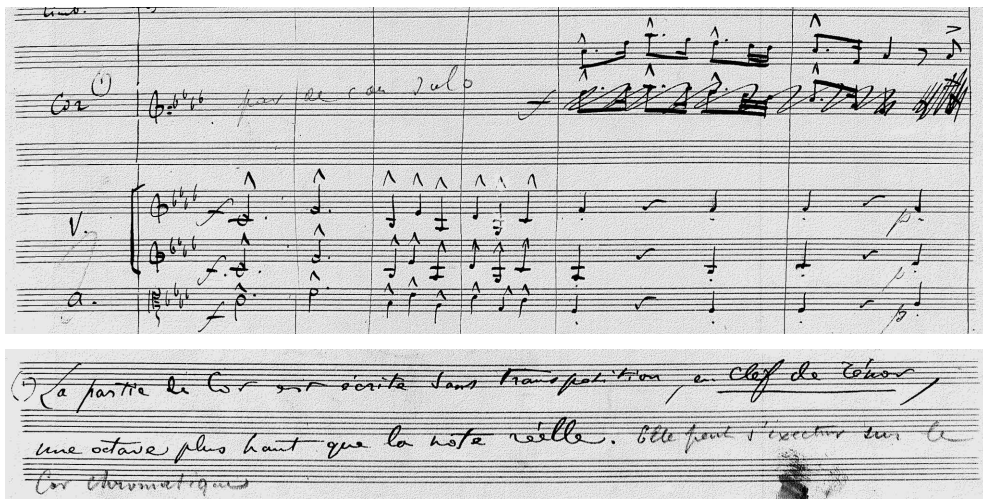 Timb.
Cor (1) partie de cor solo
f
V. f
f.
p.
a. f
p.
(1) La partie de Cor est écrite sans transposition, en clef de ténor,
une octave plus haut que la note réelle. Elle peut s'exécuter sur le
Cor chromatique